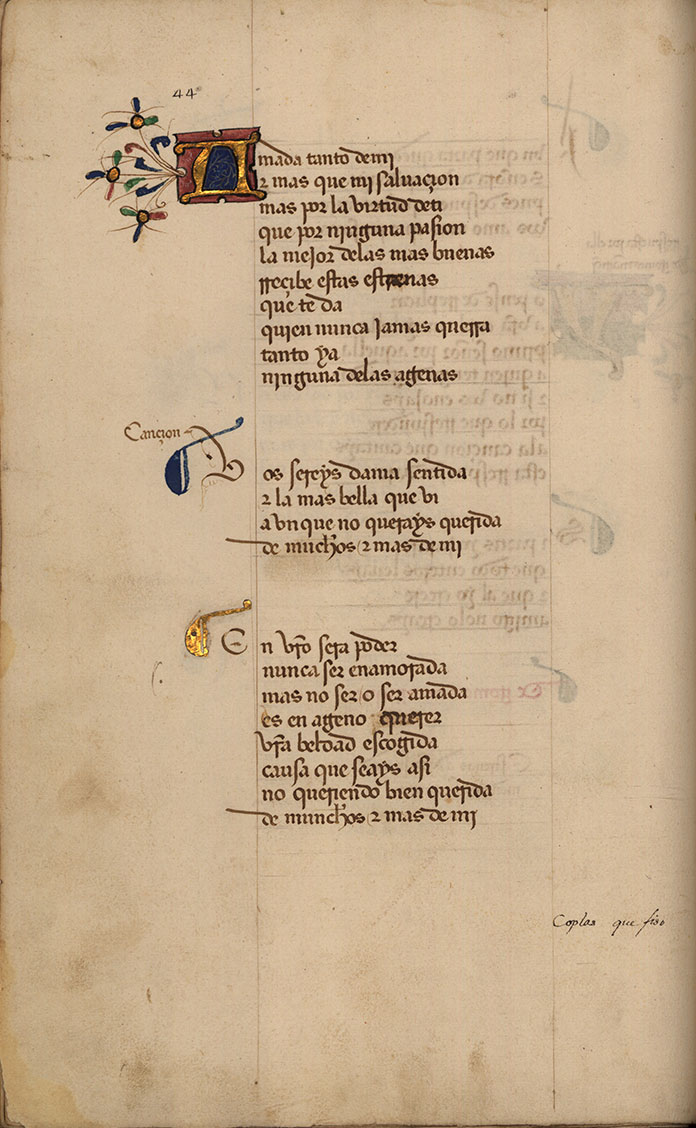 44
Amada tanto de mi
⁊ mas que mi saluaçion
mas por la virtud de ti
que por ninguna pasion
la mejor delas mas buenas
rreçibe estas estrenas
que te da
quien nunca jamas querra
tanto ya
ninguna delas agenas
Cançion
Uos sereys dama sentida
⁊ la mas bella que vi
a vn que no querays querida
de muchos ⁊ mas de mi
En vr̃o sera poder
nunca ser enamorada
mas no ser o ser amada
es en ageno querer
vr̃a beldad escogida
causa que seays asi
no queriendo bien querida
de munchos ⁊ mas de mi
Coplas que fiso